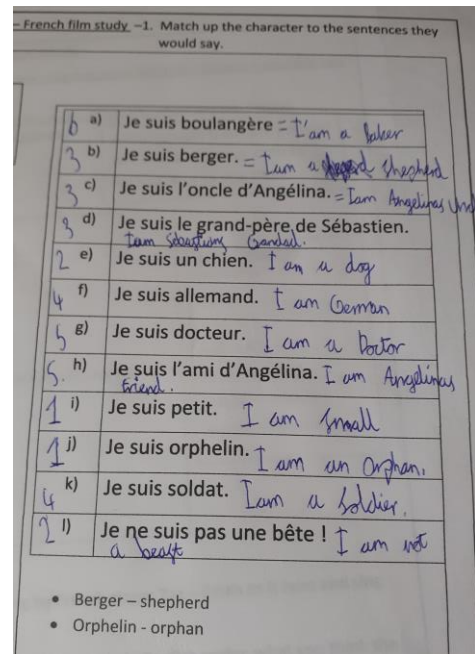 – French film study –1. Match up the character to the sentences they
would say.
6 a) Je suis boulangère = I'am a baker
3 b) Je suis berger. = I am a shepherd
3 c) Je suis l'oncle d'Angélina. = I am Angelinas Unc
3 d) Je suis le grand-père de Sébastien.
I am Sebastions Gandad.
2 e) Je suis un chien. I am a dog
4 f) Je suis allemand. I am German
5 g) Je suis docteur. I am a Doctor
5. h) Je suis l'ami d'Angélina. I am Angelinas
friend.
1 i) Je suis petit. I am Small
1 j) Je suis orphelin. I am an Orphan.
4 k) Je suis soldat. I am a Soldier.
2 l) Je ne suis pas une bête ! I am not
a beast
• Berger – shepherd
• Orphelin - orphan